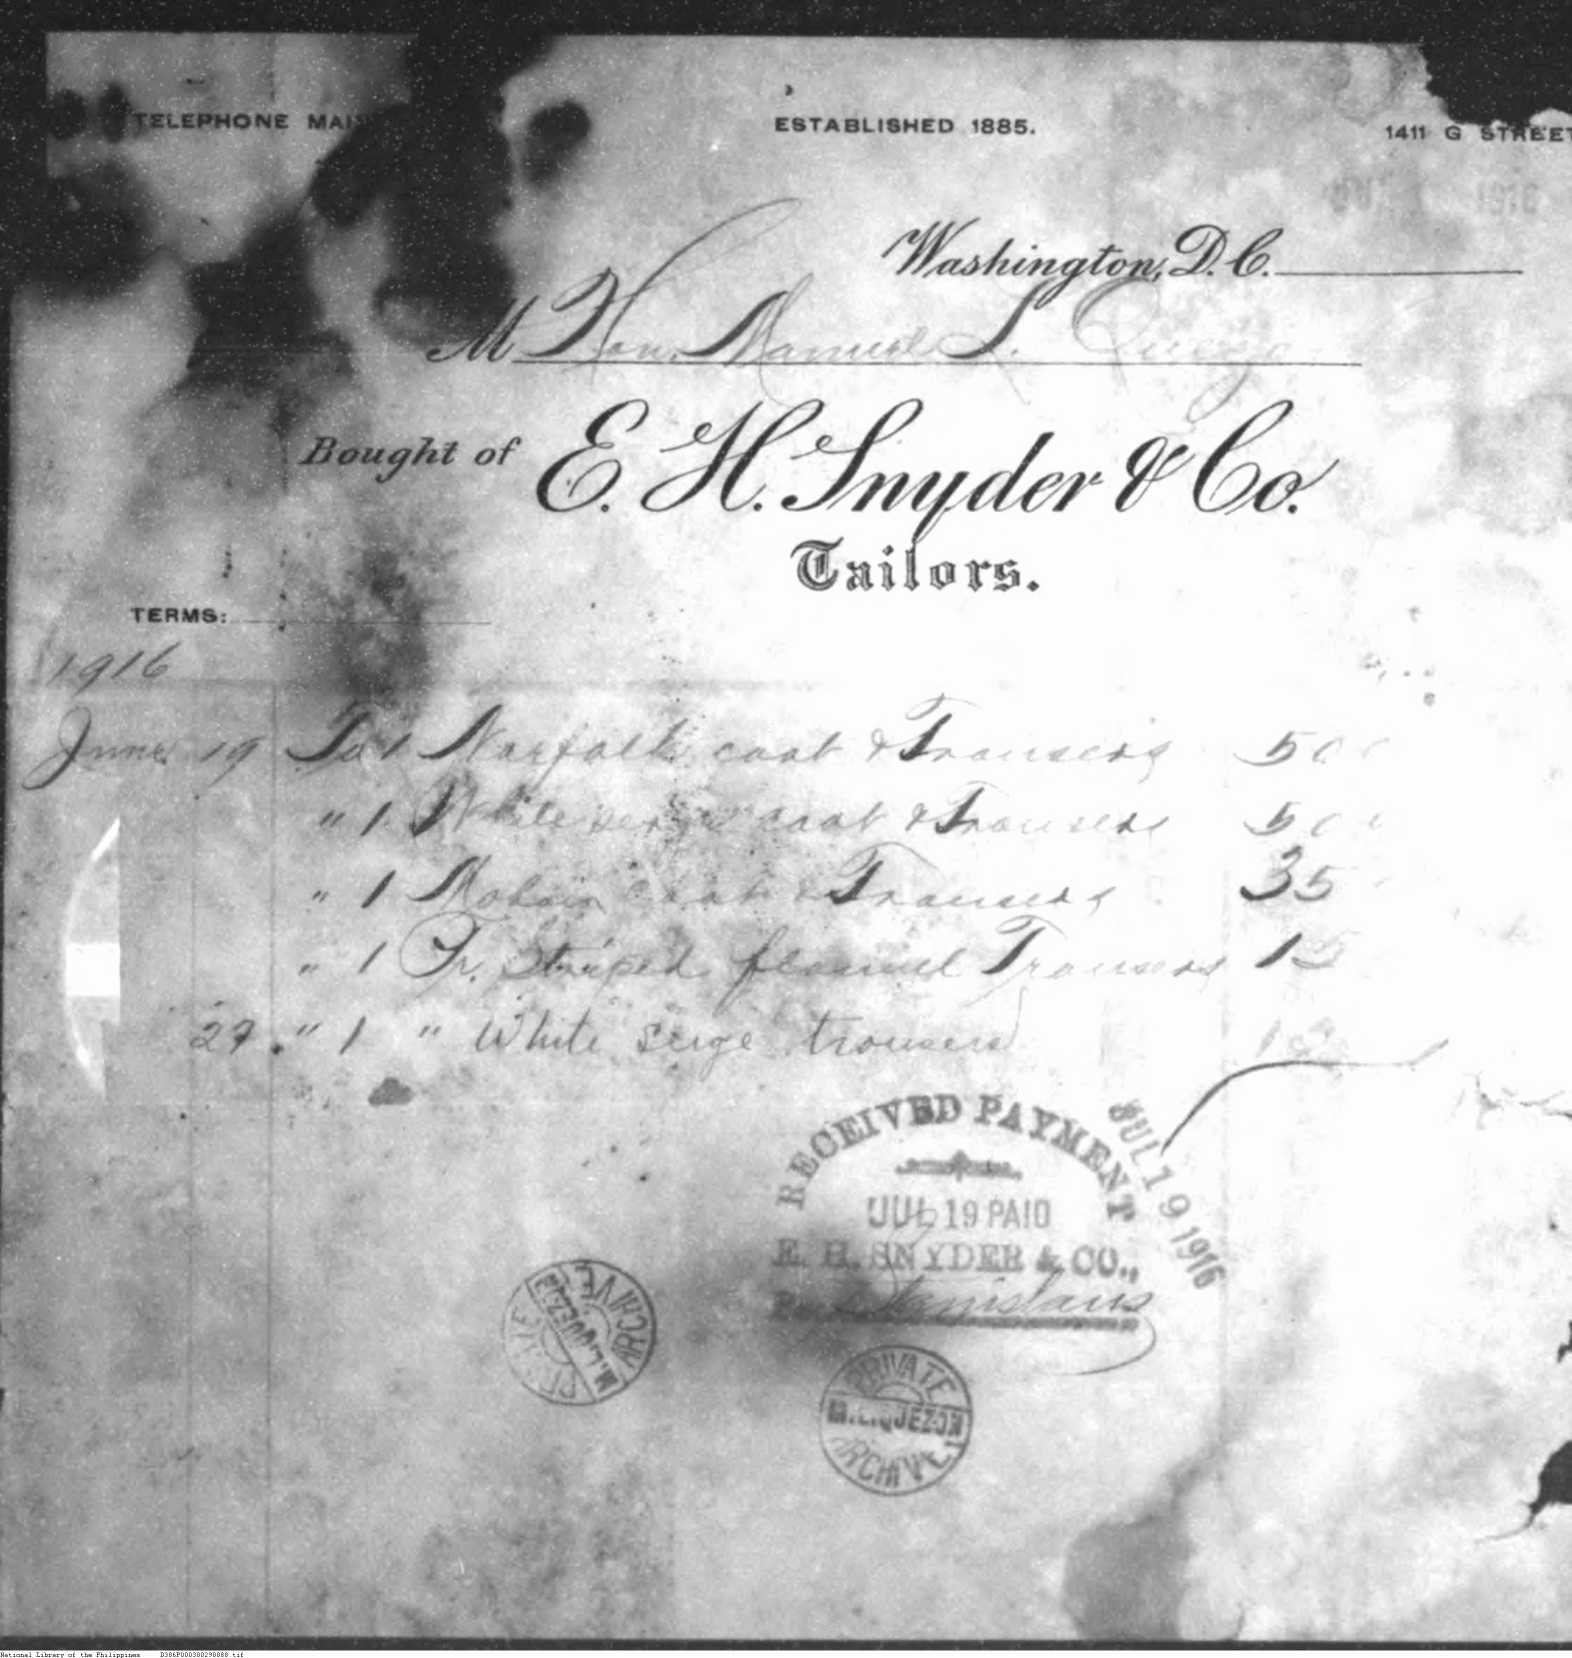 TELEPHONE MAIN
ESTABLISHED 1885.
1411 G STREET
Washington, D. C.
M Hon. Manuel L. Quezon
Bought of E. H. Snyder & Co.
Tailors.
TERMS:
1916
June 19 To 1 Norfolk coat & Trousers 50
" 1 White serge coat & Trousers 50
" 1 Mohair coat & Trousers 35
" 1 Pr. Striped flannel Trousers 15
27 " 1 " White serge trousers
RECEIVED PAYMENT
JUL 19 PAID
E. H. SNYDER & CO.,
Per Stanislaus
JUL 19 1916
PRIVATE
M.L.QUEZON
ARCHIVE
PRIVATE
M.L.QUEZON
ARCHIVE
National Library of the Philippines D386P000300290088.tif